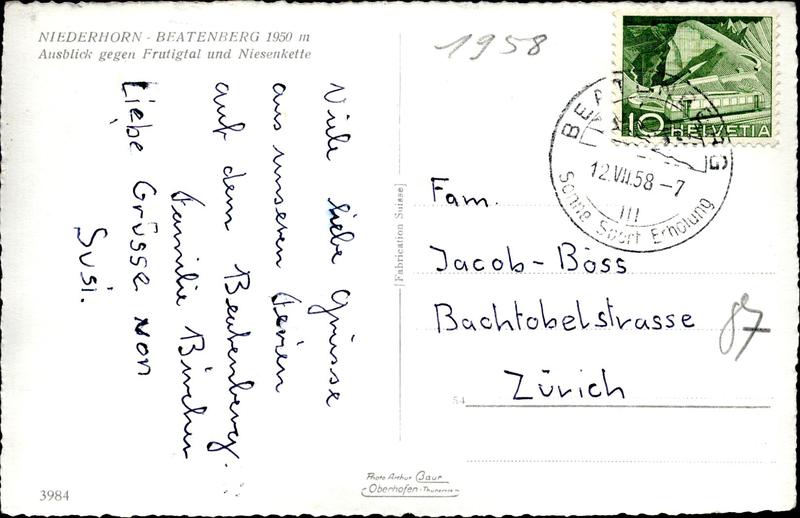 NIEDERHORN - BEATENBERG 1950 m
Ausblick gegen Frutigtal und Niesenkette
Viele liebe Grüsse
aus unseren Ferien
auf dem Beatenberg.
Familie
Liebe Grüsse von
Susi.
3984
[Fabrication Suisse]
Photo Arthur Baur
Oberhofen-Thunersee
1958
10 HELVETIA
BEATENBERG
12.VII.58-7
III
Sonne Sport Erholung
Fam.
Jacob-Böss
Bachtobelstrasse
Zürich
54
87